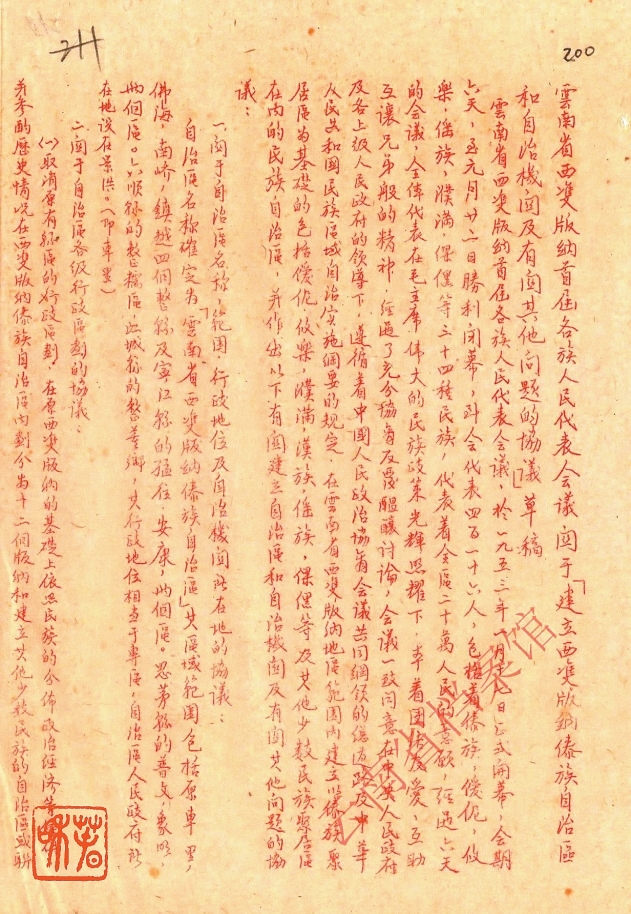 200
雲南省西雙版納首届各族人民代表会議関于「建立西雙版納傣族自治區
和自治機関及有関其他問題的協議」草稿
雲南省西雙版納首届各族人民代表会議，於一九五三年一月十七日正式開幕，会期
六天，至元月廿二日勝利闭幕，到会代表四百一十六人，包括着傣族，僾伲，攸
樂，傜族，濮满，倮黑等三十四種民族，代表着全區二十萬人民的意願，經过六天
的会議，全体代表在毛主席偉大的民族政策光輝照耀下，本着团結友愛，互助
互讓兄弟般的精神，經过了充分協商反覆醖釀讨論，会議一致同意在中央人民政府
及各上级人民政府的领导下，遵循着中國人民政治協商会議共同綱领的總道路及中華
人民共和國民族區域自治实施綱要的规定，在雲南省西雙版納地區範囲内建立以傣族聚
居區为基礎的包括僾伲，攸樂，濮满，漢族，傜族，倮黑等及其他少數民族聚居區
在内的民族自治區，并作出以下有関建立自治區和自治機関及有関其他问題的協
議：
一、関于自治區名称，範囲，行政地位及自治機関所在地的協議：
自治區名称確定为「雲南省西雙版納傣族自治區」其區域範囲包括原車里，
佛海，南嶠，鎮越四個整縣及寧江縣的猛往，安康，两個區。思茅縣的普文，象明，
两個區。六順縣的整糯區，江城縣的整董鄉，其行政地位相当于專區，自治區人民政府所
在地设在景洪。（即車里）
二、関于自治區各级行政區劃的協議：
㈠取消原有縣區的行政區劃，在原西雙版納的基礎上依照民族的分佈政治經济等
并参酌歷史情况在西雙版納傣族自治區内劃分为十二個版納和建立其他少數民族的自治區或联
雲南省档案馆